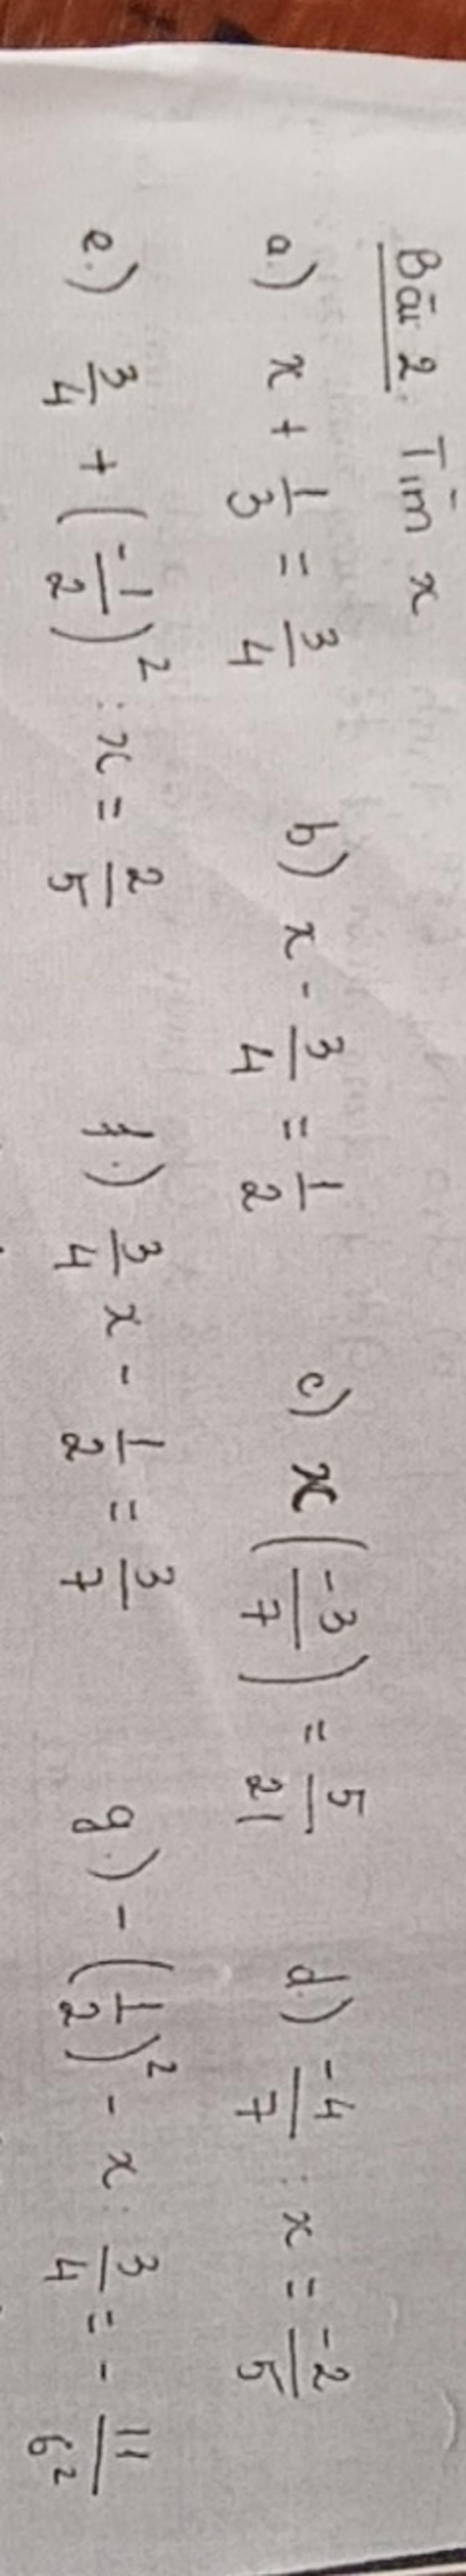 Bài 2. Tìm x
a.) x + 1/3 = 3/4 b.) x - 3/4 = 1/2 c) x (-3/7) = 5/21 d.) -4/7 : x = -2/5
e.) 3/4 + (-1/2)² : x = 2/5 f.) 3/4 x - 1/2 = 3/7 g.) - (1/2)² - x : 3/4 = - 11/6²